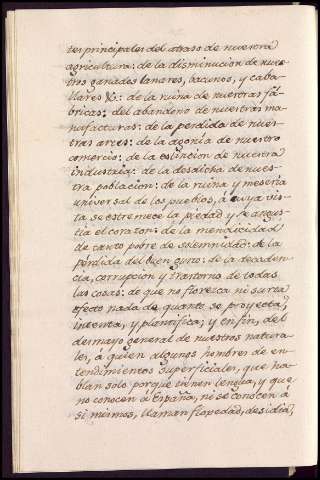 tes principales del atraso de nuestra
agricultura: de la disminucion de nues-
tros ganados lanares, bacunos, y caba-
llares &: de la ruina de nuestras fá-
bricas: del abandono de nuestras ma-
nufacturas: de la perdida de nues-
tras artes: de la agonía de nuestro
comercio: de la estincion de nuestra
industria: de la desdicha de nues-
tra poblacion: de la ruina y meseria
universal de los pueblos, á cuya vis-
ta se estremece la piedad y se angus-
tia el corazon: de la mendicidad
de tanto pobre de solemnidad: de la
pérdida del buen gusto: de la decaden-
cia, corrupcion y trastorno de todas
las cosas: de que no florezca ni surta
efecto nada de quanto se proyecta,
intenta, y plantifica; y en fin, del
desmayo general de nuestros natura-
les, á quien algunos hombres de en-
tendimientos superficiales, que ha-
blan solo porque tienen lengua, y que
no conocen á España, ni se conocen á
si mismos, llaman flogedad, desidia,